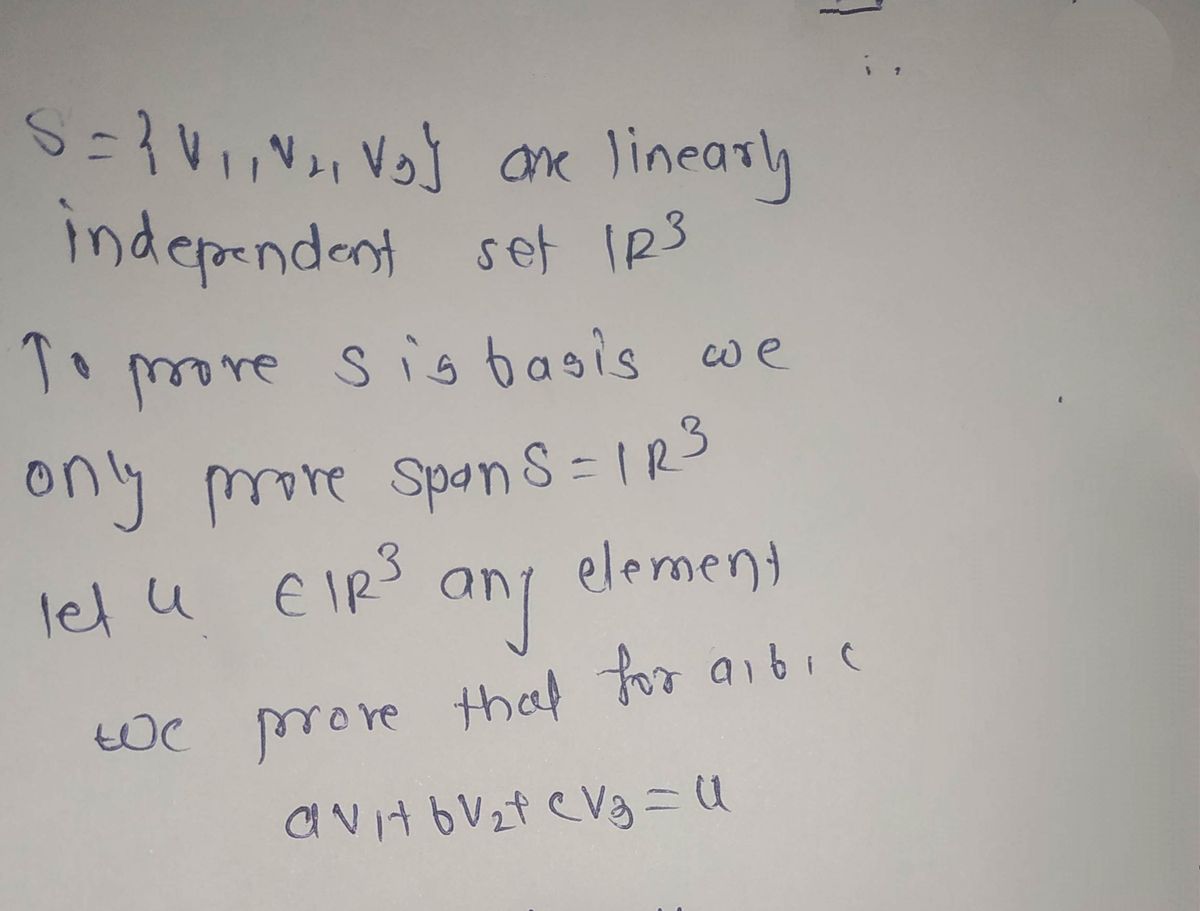 S = { V1, V2, V3} are linearly
independent set IR³
To prove S is basis we
only prove span S = IR³
let u ∈ IR³ any element
we prove that for a, b, c
a v1 + b V2 + c V3 = u